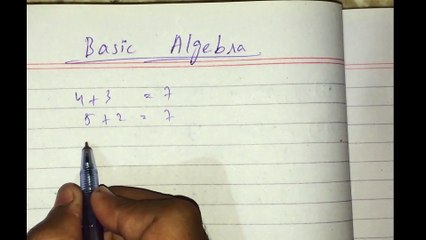 Basic Algebra
4 + 3 = 7
5 + 2 = 7